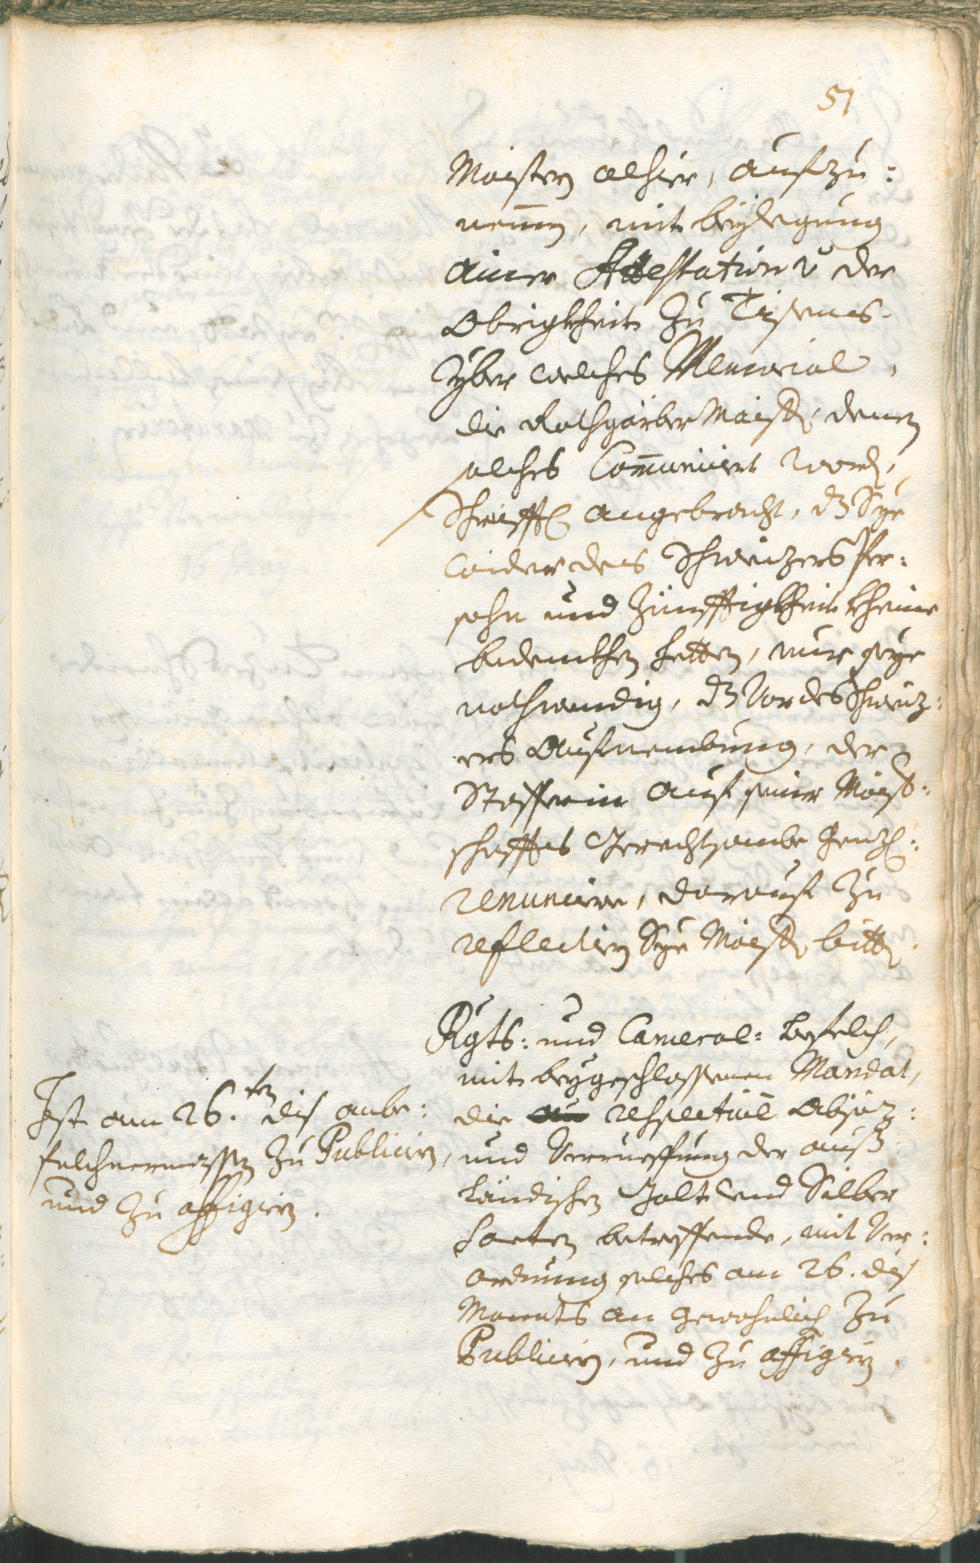 51
Maistern alhier, aufzu:
nemmen, mit beylegung
ainer Attestation v der
Obrigkheit zu Tisens.
Yber welches Memorial,
die Rothgärber Maister, denen
solches Communiciert word,
Schrifftl angebracht, dz Sye
wider des Schweizers Per:
sohn und Zünfftigkheit kheine
bedenkhen hetten, nur seye
nothwendig, dz vor des Schweiz:
ers Aufnembung, der
auf seiner Maist:
schaffts Gerechtsambe genzl:
renuncire, darauf zu
reflectiern Sye Maister bitten.
Rgts: und Cameral: befelch,
mit beygeschlossenem Mandat,
die respective Absaz:
und Verrueffung der auß
ländischen Golt und Silber
Sorten betreffende, mit Ver:
ordnung solches am 26. dis
Monats an gewohnlich zu
Publiciern, und zu affigiern.
Ist am 26.ten dis anbe:
felchnermassen zu Publiciern,
und zu affigiern.